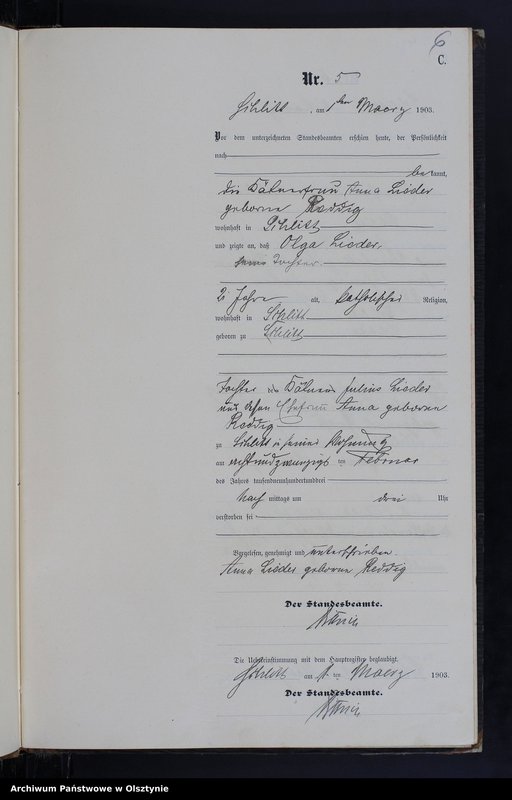 6
C.
Nr. 5
Schlitt, am 1ten Maerz 1903.
Vor dem unterzeichneten Standesbeamten erschien heute, der Persönlichkeit
nach
be kannt,
die Kätnerfrau Anna Lieder
geborene Reddig
wohnhaft in Schlitt
und zeigte an, daß Olga Lieder,
Tochter
2 Jahre alt, katholischer Religion,
wohnhaft in Schlitt
geboren zu Schlitt
Tochter des Kätners Julius Lieder
und dessen Ehefrau Anna geborene
Reddig
zu Schlitt in seiner Wohnung
am achtundzwanzigsten Februar
des Jahres tausendneunhundertunddrei
Nach mittags um drei Uhr
verstorben sei
Vorgelesen, genehmigt und unterschrieben.
Anna Lieder geborene Reddig
Der Standesbeamte.
Die Uebereinstimmung mit dem Hauptregister beglaubigt.
Schlitt am 1 ten Maerz 1903.
Der Standesbeamte.
Archiwum Państwowe w Olsztynie